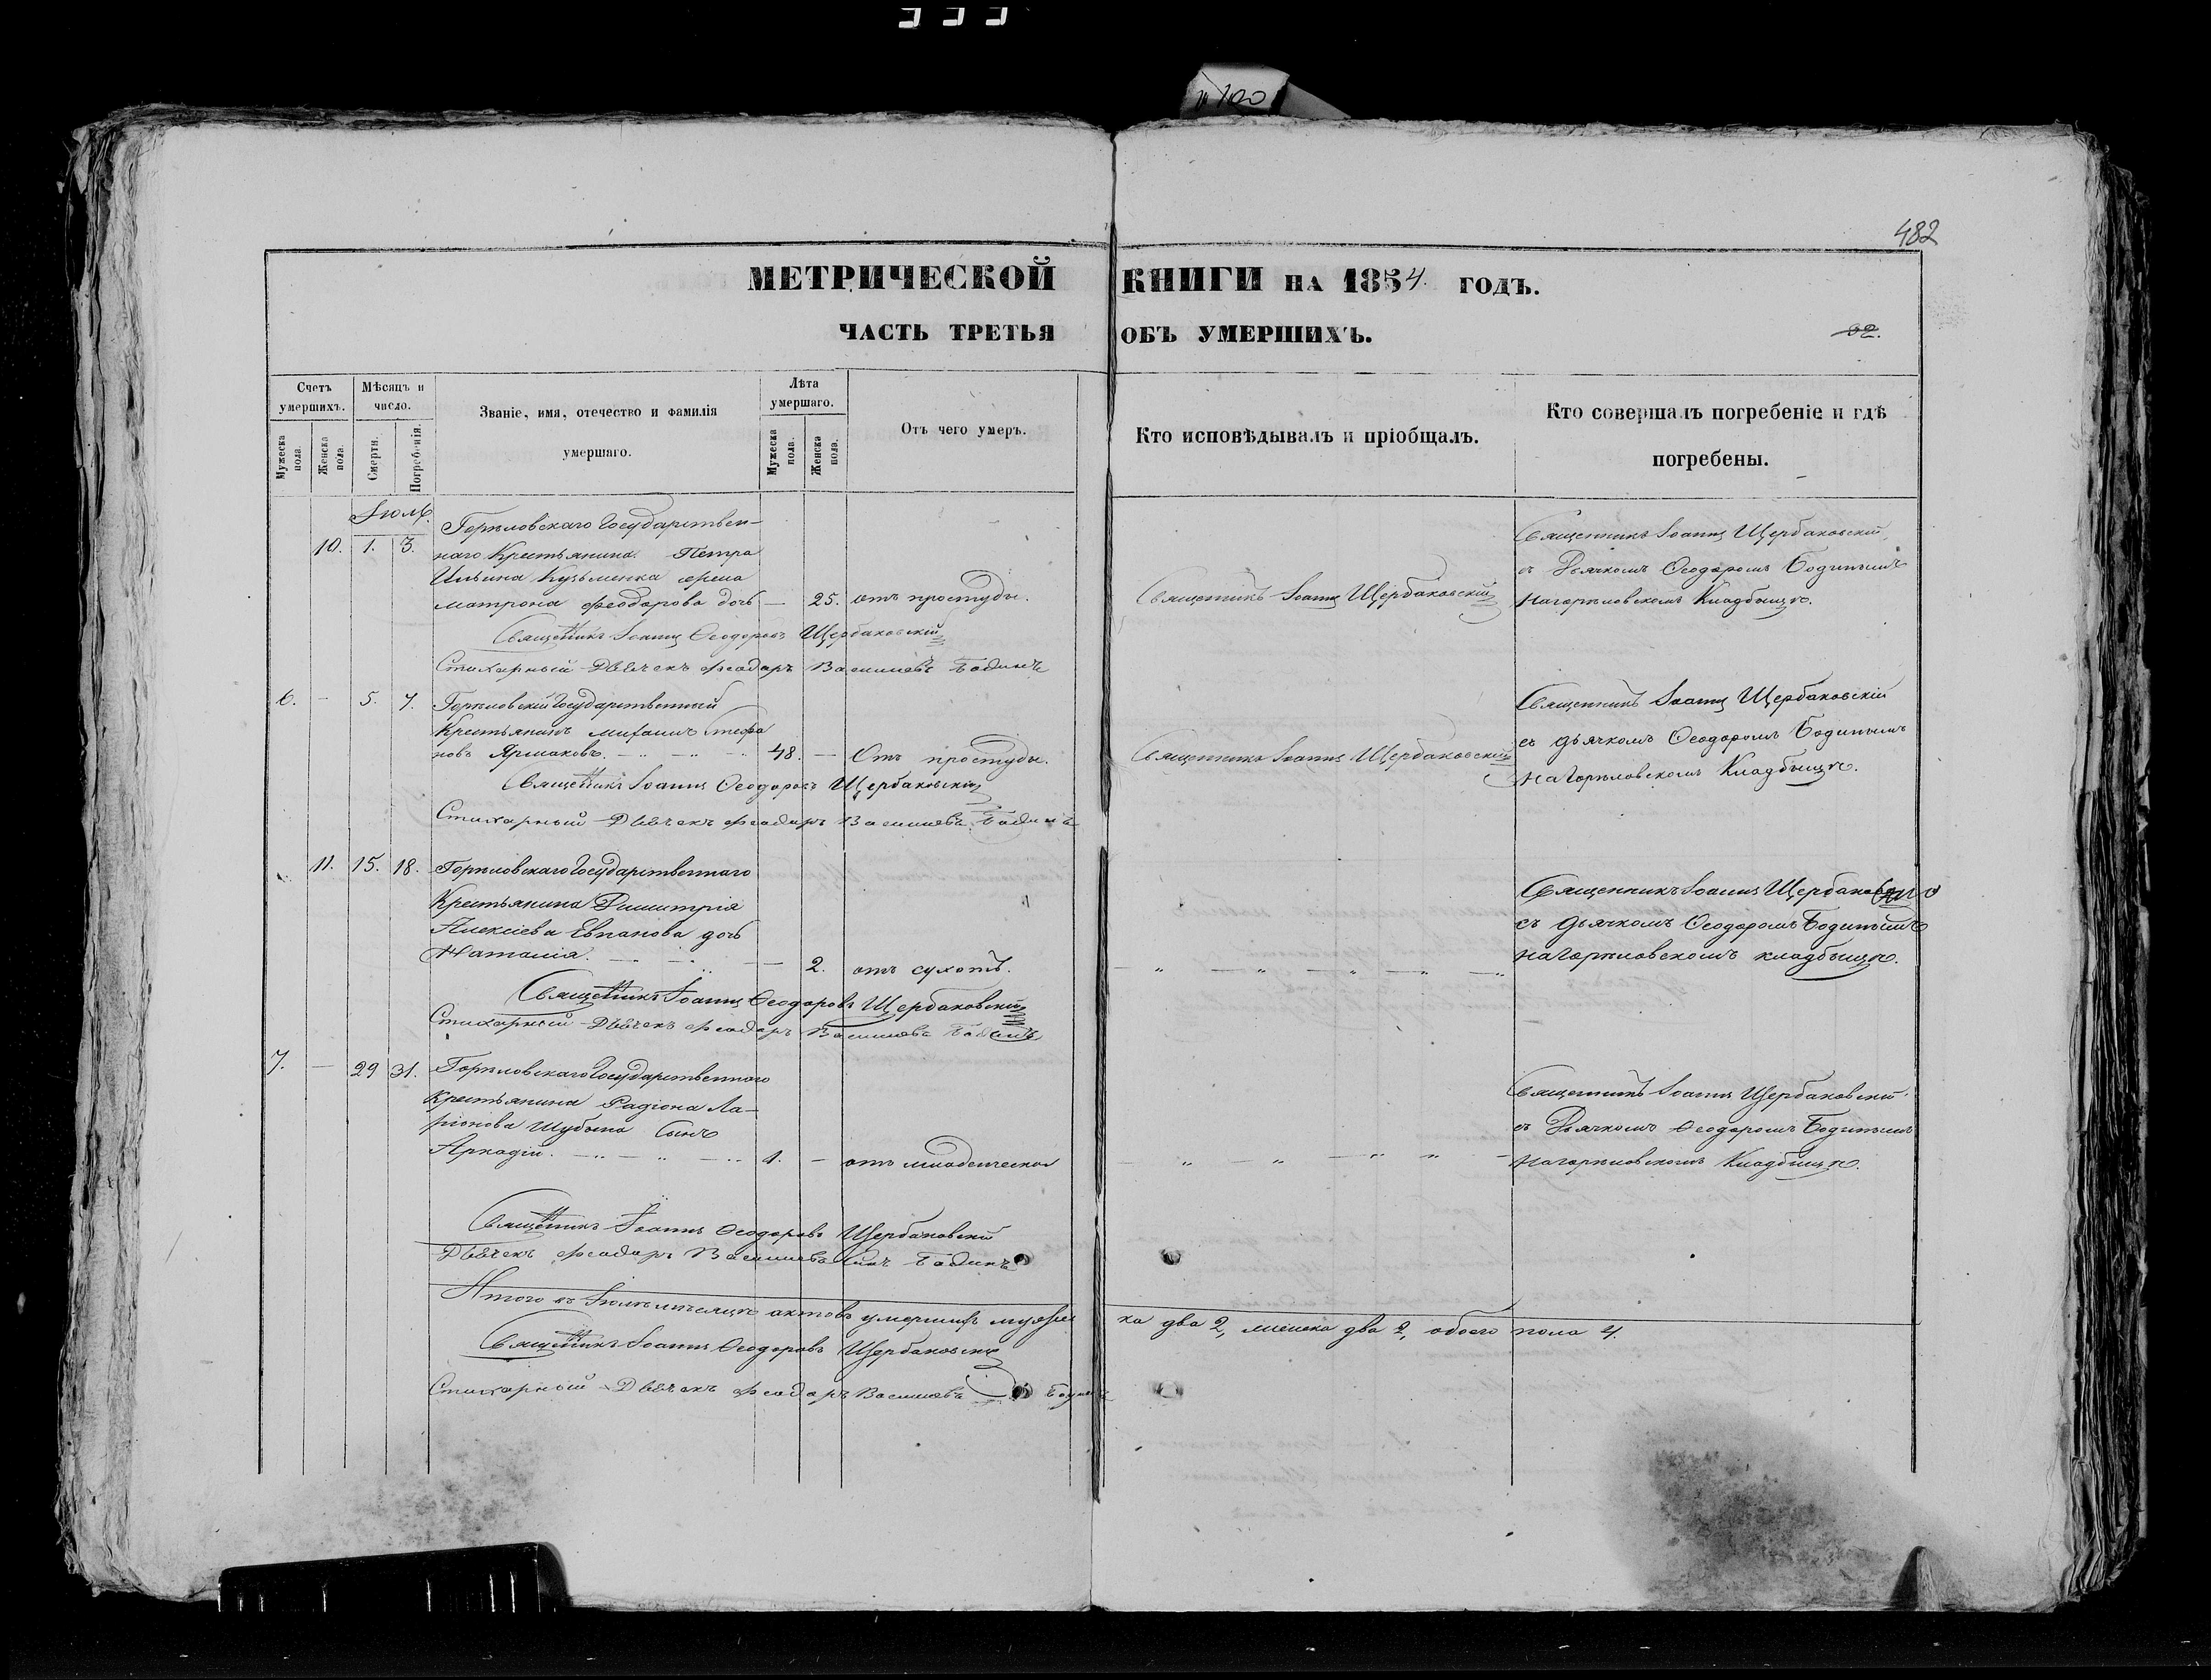 № 100
482
МЕТРИЧЕСКОЙ КНИГИ НА 1854 ГОДЪ.
ЧАСТЬ ТРЕТЬЯ ОБЪ УМЕРШИХЪ.
Счетъ умершихъ.
Мужеска пола.
Женска пола.
Мѣсяцъ и число.
Смерти.
Погребенія.
Званіе, имя, отечество и фамилія умершаго.
Лѣта умершаго.
Мужеска пола.
Женска пола.
Отъ чего умеръ.
Кто исповѣдывалъ и пріобщалъ.
Кто совершалъ погребеніе и гдѣ погребены.
Іюль.
10. 1. 3.
Горѣловскаго Государствен-
наго Крестьянина Петра
Ильина Кузьменка жена
Матрона Феодорова дочь — 25. отъ простуды.
Священникъ Іоаннъ Щербаковскій
Священникъ Іоаннъ Щербаковскій
съ Дьячкомъ Ѳеодоромъ Бодинымъ
на Горѣловскомъ Кладбищѣ.
Священникъ Іоаннъ Ѳеодоровъ Щербаковскій
Стихарный Дьячекъ Феодоръ Васильевъ Бодинъ
6. — 5. 7.
Горѣловскій Государственный
Крестьянинъ Михаилъ Стефа
новъ Ярмаковъ. 48. — Отъ простуды.
Священникъ Іоаннъ Щербаковскій
Священникъ Іоаннъ Щербаковскій
съ дьячкомъ Ѳеодоромъ Бодинымъ
на Горѣловскомъ Кладбищѣ.
Священникъ Іоаннъ Ѳеодоровъ Щербаковскій
Стихарный Дьячекъ Феодоръ Васильевъ Бодинъ
11. 15. 18.
Горѣловскаго Государственнаго
Крестьянина Димитрія
Алексіева Евпанова дочь
Наталія. — 2. отъ сухотъ.
Священникъ Іоаннъ Щербаковскій
съ дьячкомъ Ѳеодоромъ Бодинымъ
на Горѣловскомъ кладбищѣ.
Священникъ Іоаннъ Ѳеодоровъ Щербаковскій
Стихарный Дьячекъ Феодоръ Васильевъ Бодинъ
7. — 29 31.
Горѣловскаго Государственного
Крестьянина Радіона Ла-
ріонова Шубына Сынъ
Аркадій. 1. — отъ младенческой
Священникъ Іоаннъ Щербаковскій
съ Дьячкомъ Ѳеодоромъ Бодинымъ
на Горѣловскомъ Кладбищѣ.
Священникъ Іоаннъ Ѳеодоровъ Щербаковскій
Дьячекъ Феодоръ Васильевъ Бодинъ
Итого въ Іюлѣ мѣсяцѣ актовъ умершихъ мужес ка два 2, женска два 2, обоего пола 4.
Священникъ Іоаннъ Ѳеодоровъ Щербаковскій
Стихарный Дьячекъ Феодоръ Васильевъ Бодинъ